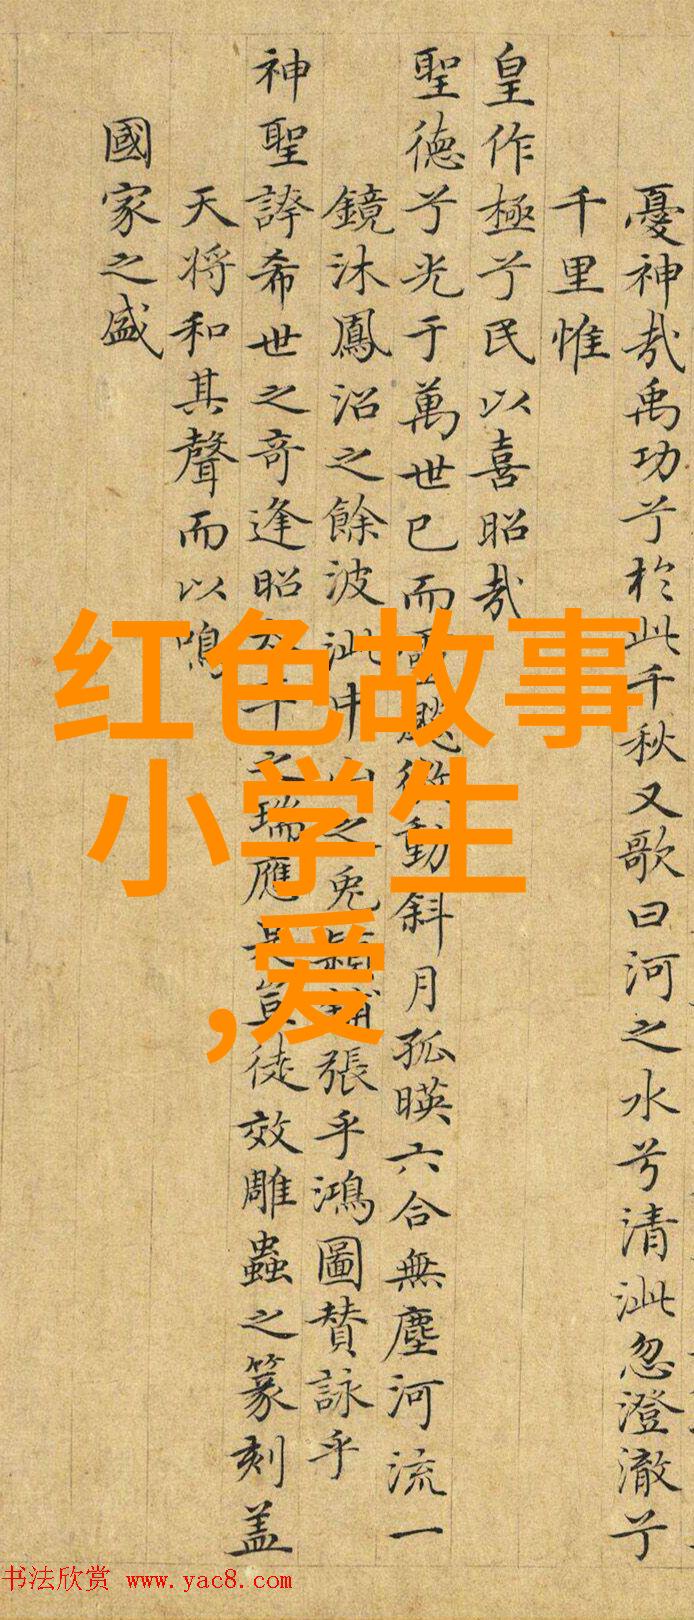 憂神哉禹功兮於此千秋又歌曰河之水兮清泚忽澄澈兮
千里惟
皇作極兮民以喜昭哉
聖德兮光于萬世已而霊飈微動斜月孤暎六合無塵河流一
鏡沐鳳沼之餘波泚中山之兔穎鋪張乎鴻圖賛詠乎
神聖誇希世之奇逢昭之瑞應是豈徒效雕蟲之篆刻盖
天将和其聲而以鳴
國家之盛
红色故事
小学生
,爱
书法欣赏 www.yac8.com